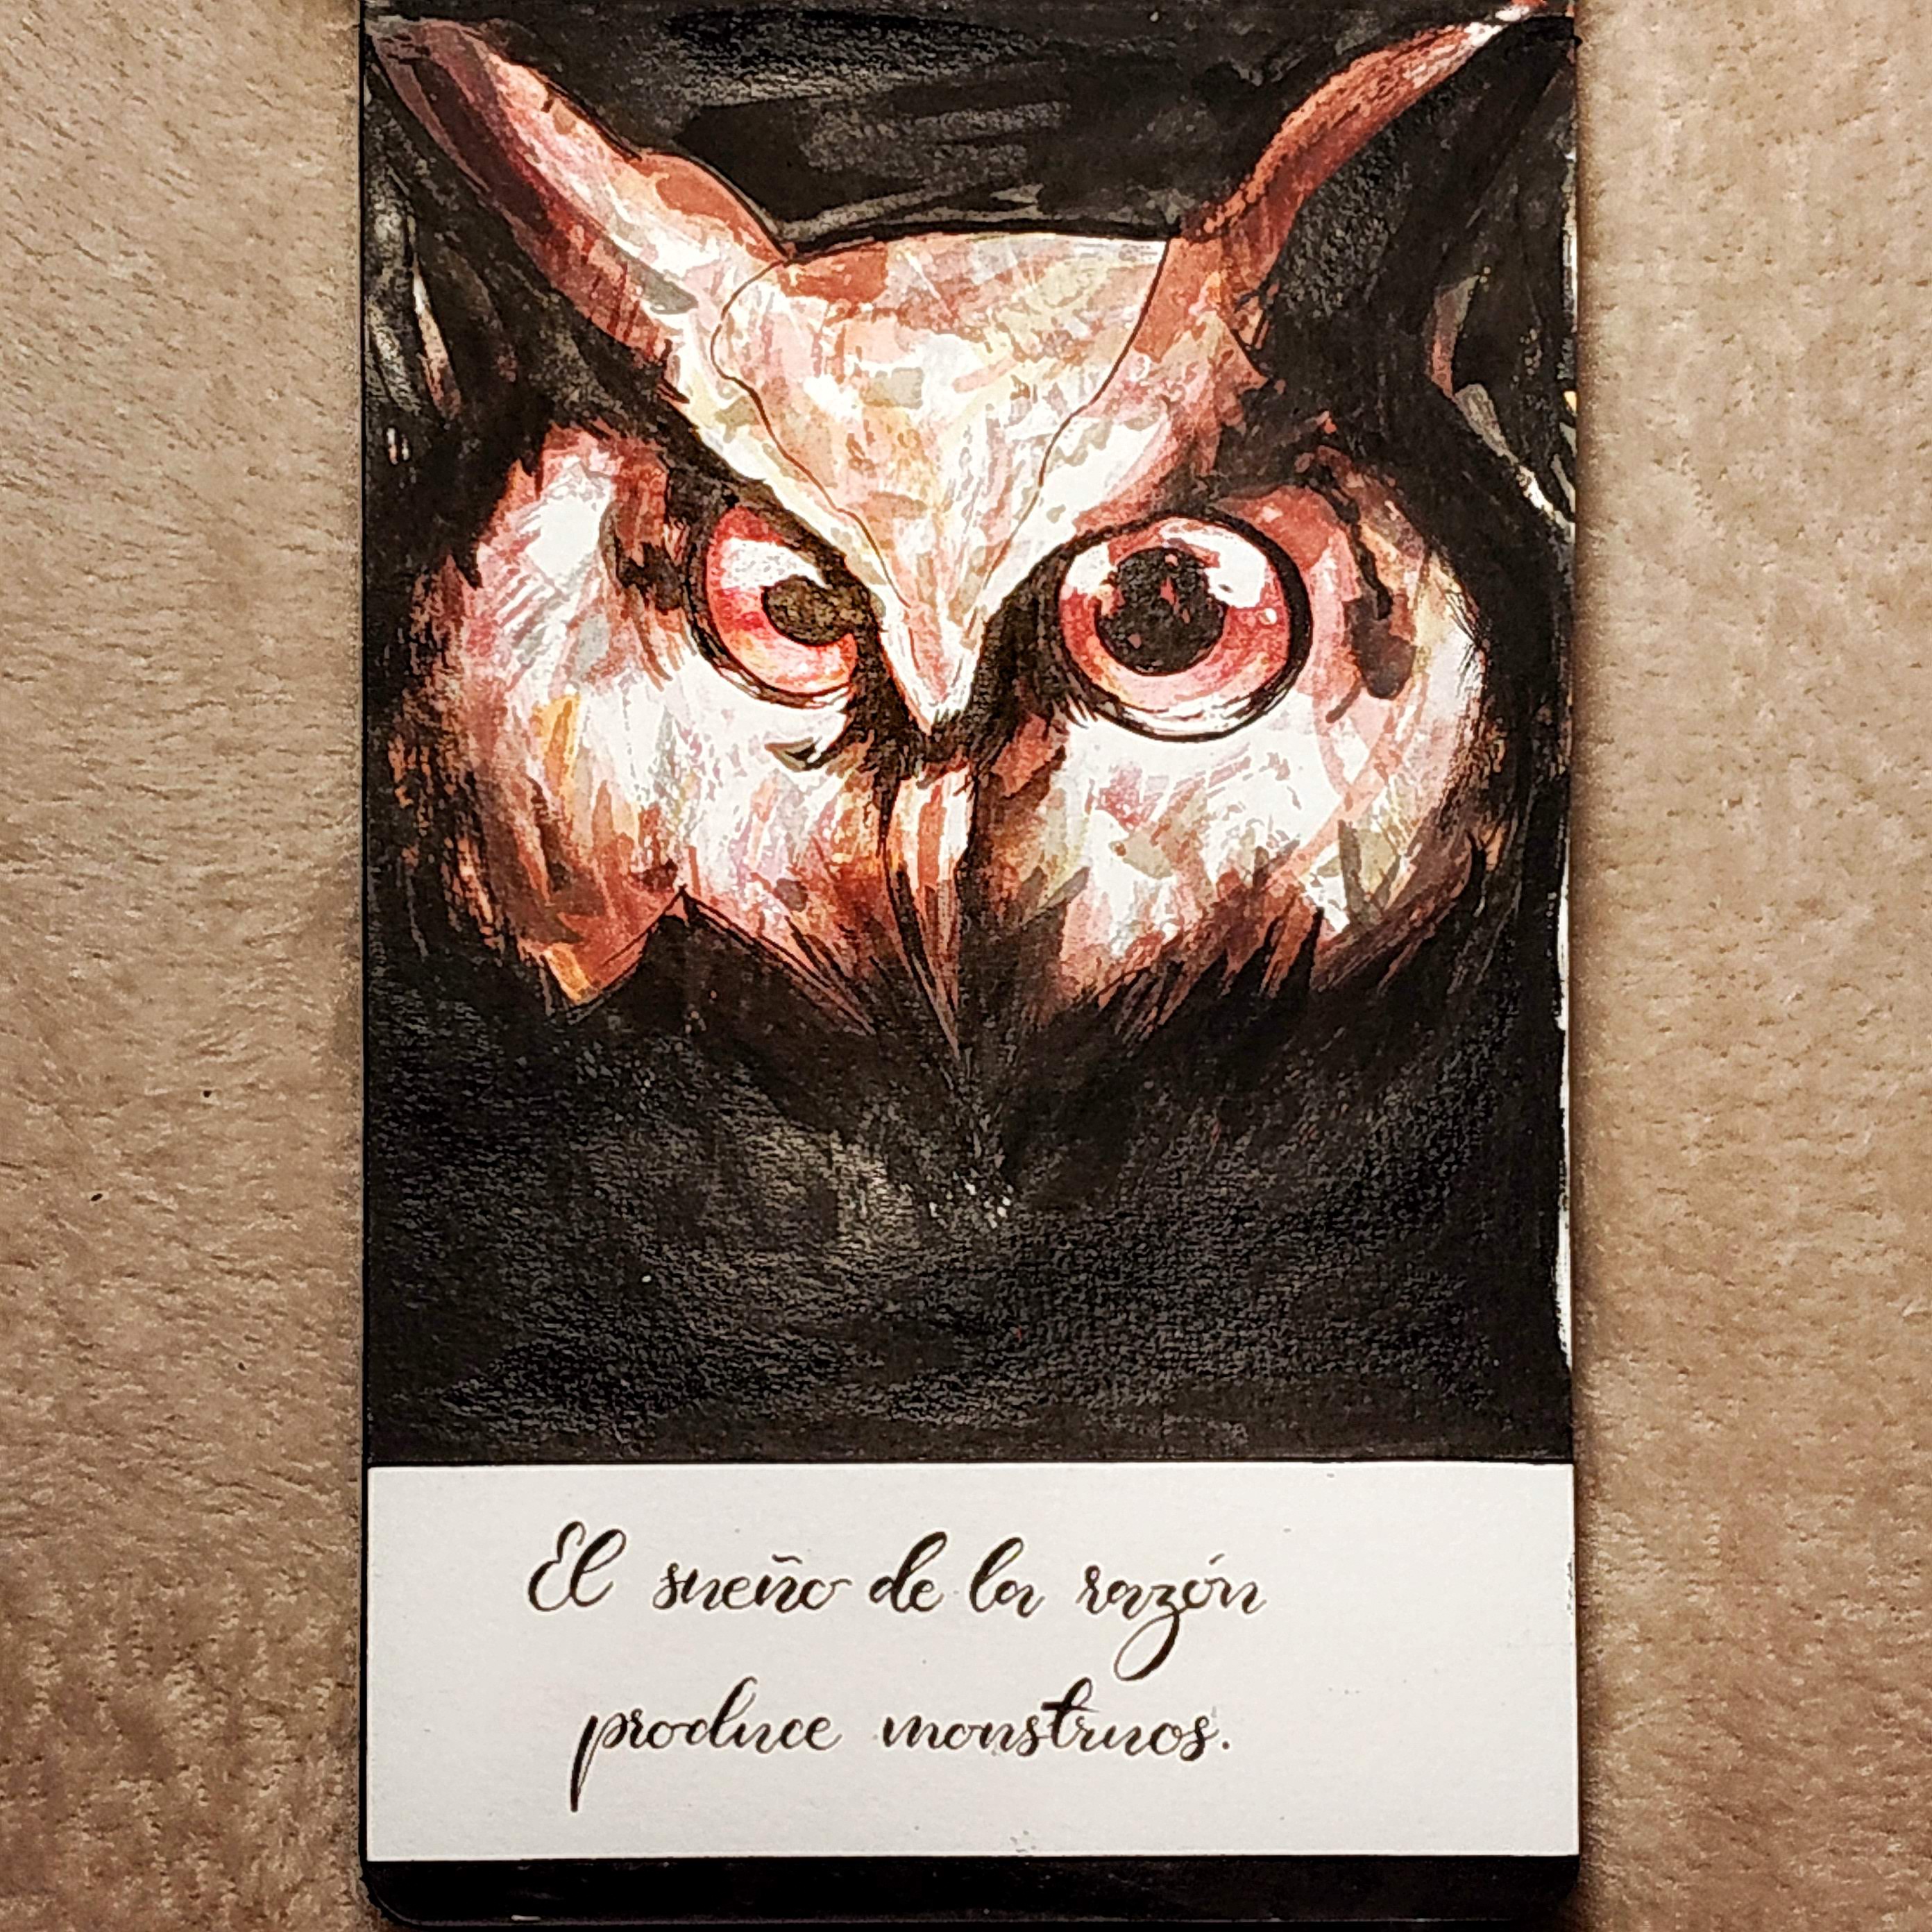 El sueño de la razón
produce monstruos.